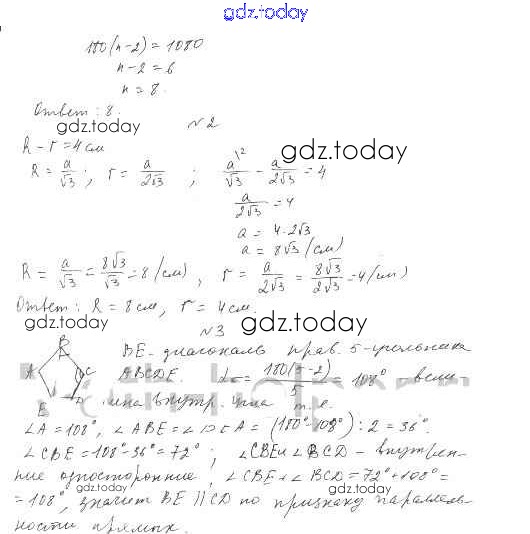 gdz.today
180(n-2)=1080
n-2=6
n=8.
Ответ: 8.
gdz.today
№2
R-r=4 см
gdz.today
R = a/√3 ; r = a/2√3 ; a\2/√3 - a/2√3 = 4
a/2√3 = 4
a = 4·2√3
a = 8√3 (см)
R = a/√3 = 8√3/√3 = 8 (см), r = a/2√3 = 8√3/2√3 = 4 (см)
Ответ: R = 8 см, r = 4 см.
gdz.today
№3
gdz.today
BE - диагональ прав. 5-угольника
ABCDE. = 180(5-2)/5 = 108° - вели-
чина внутр. т.е.
∠A = 108°, ∠ABE = ∠ = (180°-108°):2 = 36°.
∠CBE = 108°-36° = 72°; ∠CBE и ∠BCD - внутрен-
ние односторонние, ∠CBE + ∠BCD = 72°+108° =
= 108°, значит BE || CD по признаку параллель-
ности прямых.
gdz.today
gdz.today
A
B
C
D
E